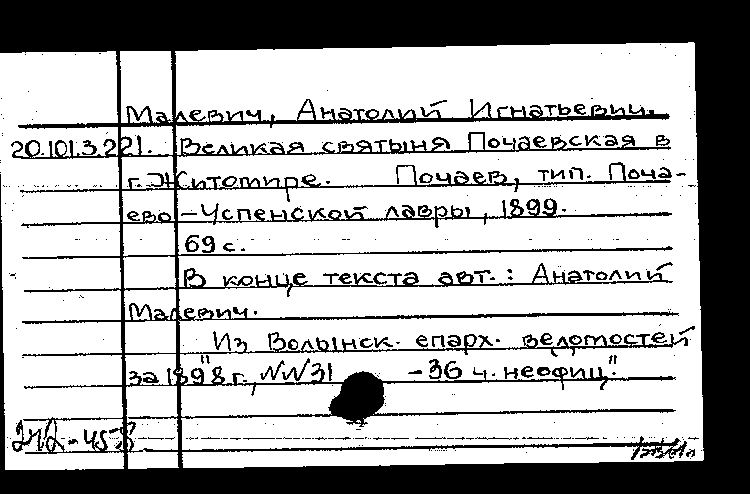 Малевич, Анатолий Игнатьевич.
20.101.3.221. Великая святыня Почаевская в
г. Житомире. Почаев, тип. Поча-
ево-Успенской лавры, 1899.
69 с.
В конце текста авт.: Анатолий
Малевич.
"Из Волынск. епарх. ведомостей
за 1898 г., NN 31 -36 ч. неофиц."